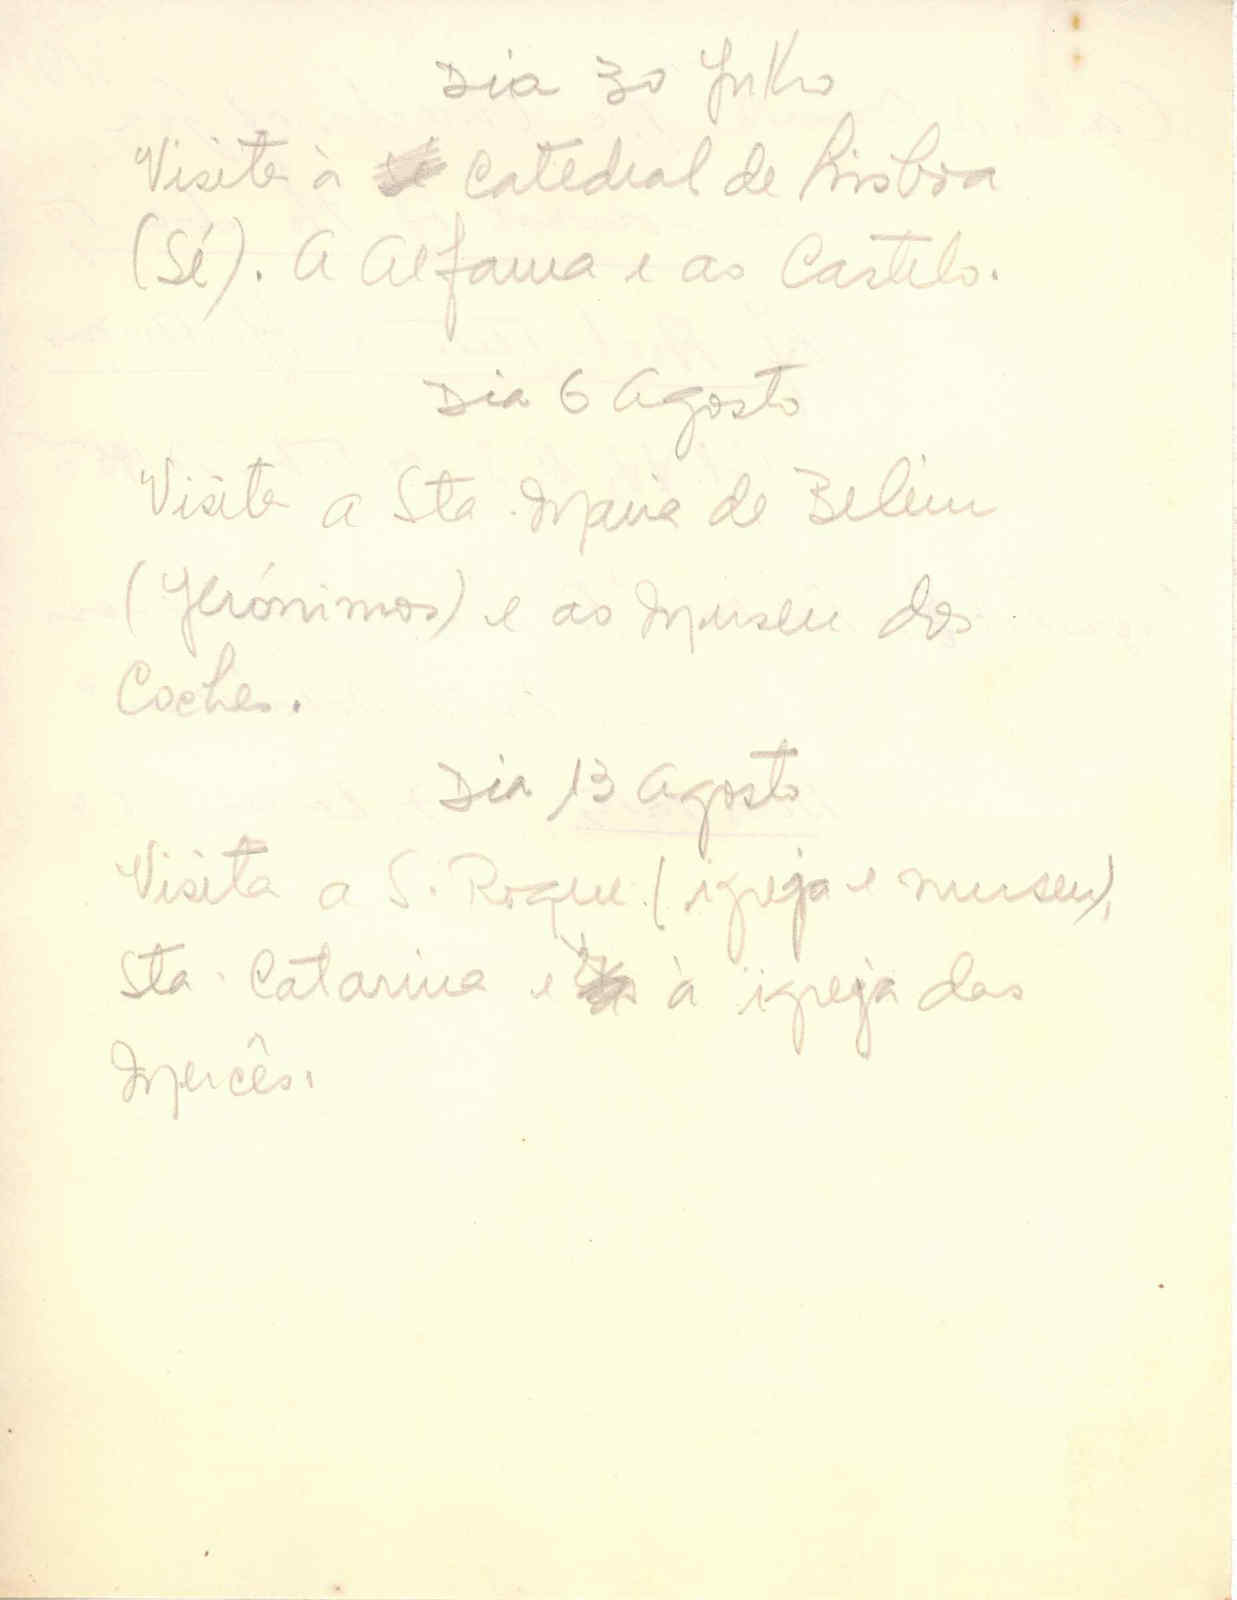 Dia 30 Julho
Visita à Catedral de Lisboa
(Sé). A Alfama e ao Castelo.
Dia 6 Agosto
Visita a Sta. Maria de Belém
(Jerónimos) e ao Museu dos
Coches.
Dia 13 Agosto
Visita a S. Roque (igreja e museu),
Sta. Catarina e à igreja das
Mercês.